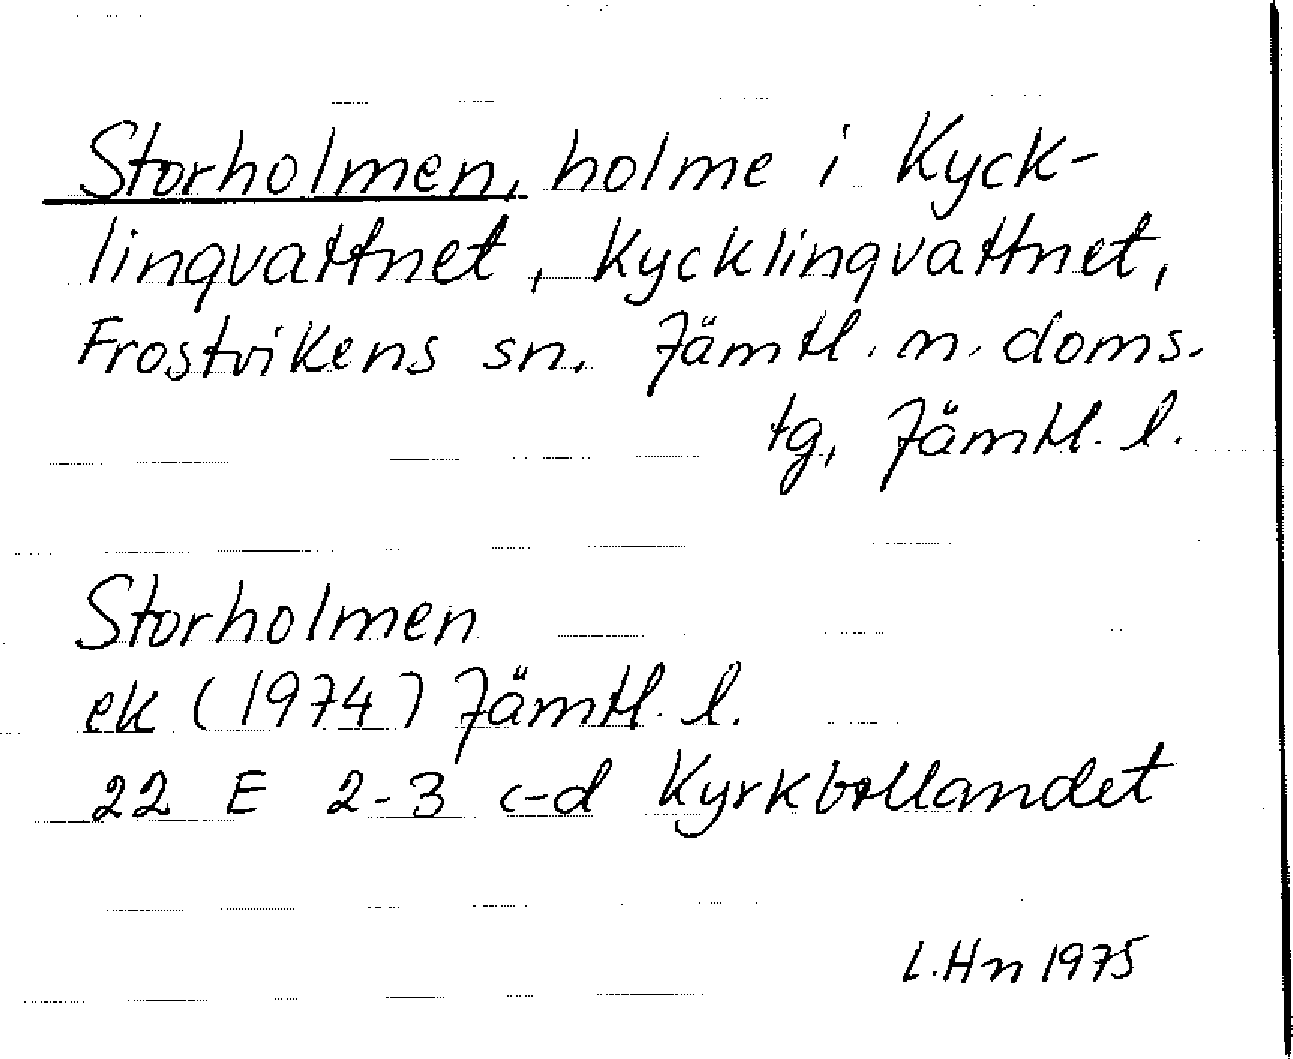 Storholmen, holme i Kyck-
lingvattnet, Kycklingvattnet,
Frostvikens sn. Jämtl. n. doms.
tg, Jämtl. l.
Storholmen
ek (1974) Jämtl. l.
22 E 2-3 c-d Kyrkbollandet
L.Hn 1975